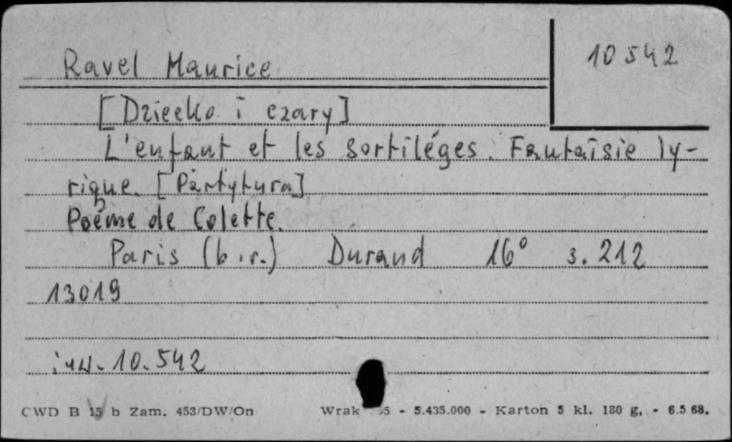 Ravel Maurice
10542
[Dziecko i czary]
L'enfant et les sortiléges. Fantaisie ly-
rique. [Partytura]
Poéme de Colette.
Paris (b.r.) Durand 16° s. 212
13019
inw. 10.542
CWD B 15 b Zam. 453/DW/On Wrak - 5.435.000 - Karton 5 kl. 180 g, - 6.5 68.